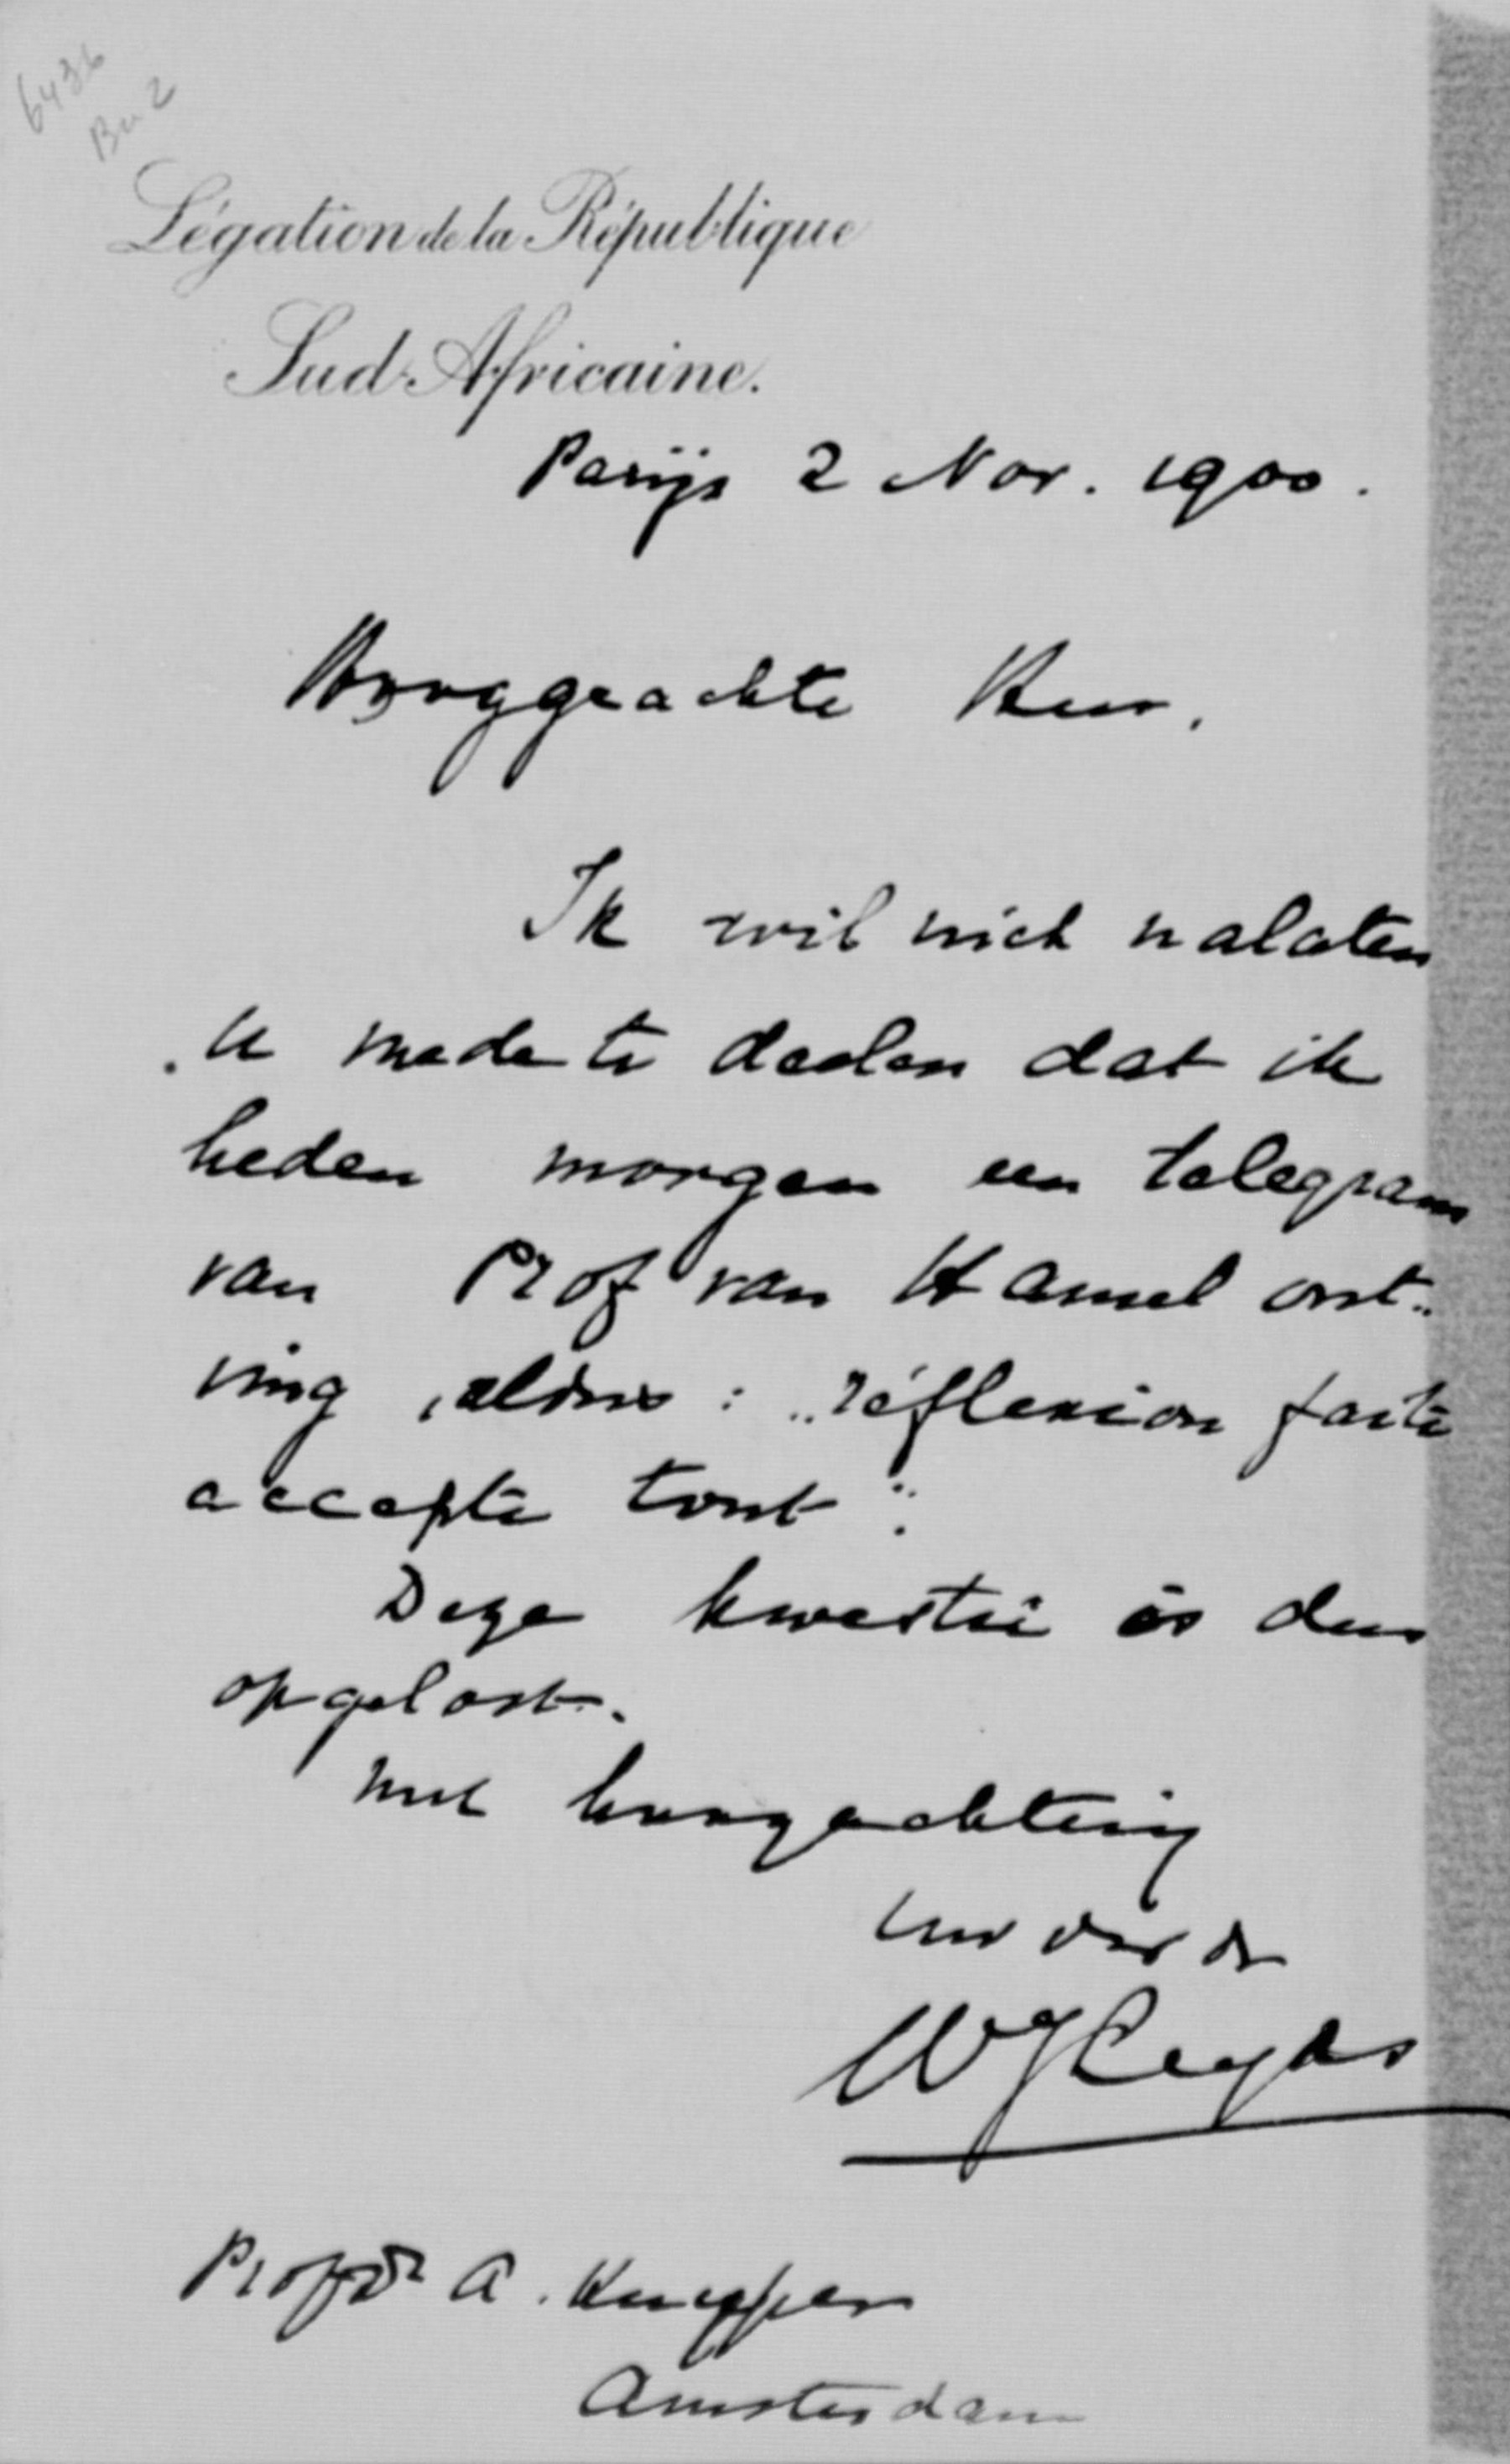 6436
Bu 2
Légation de la République
Sud-Africaine.
Parijs 2 Nov. 1900.
Hooggeachte Heer,
Ik wil niet nalaten
U mede te deelen dat ik
heden morgen een telegram
van Prof van Hamel ont-
ving, aldus: „réflexion faite
accepte tout".
Deze kwestie is dus
opgelost.
Met hoogachting
Uw dw dr
WJLeyds
Prof Dr A. Kuyper
Amsterdam